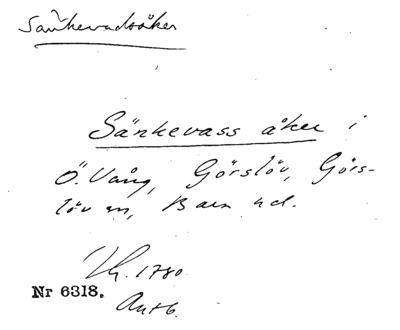 Sänkevadsåker
Sänkevass åker i
Ö. Vång, Görslöv, Görs-
löv sn, Bara hd.
Lh. 1780
Nr 6318.
Antb.